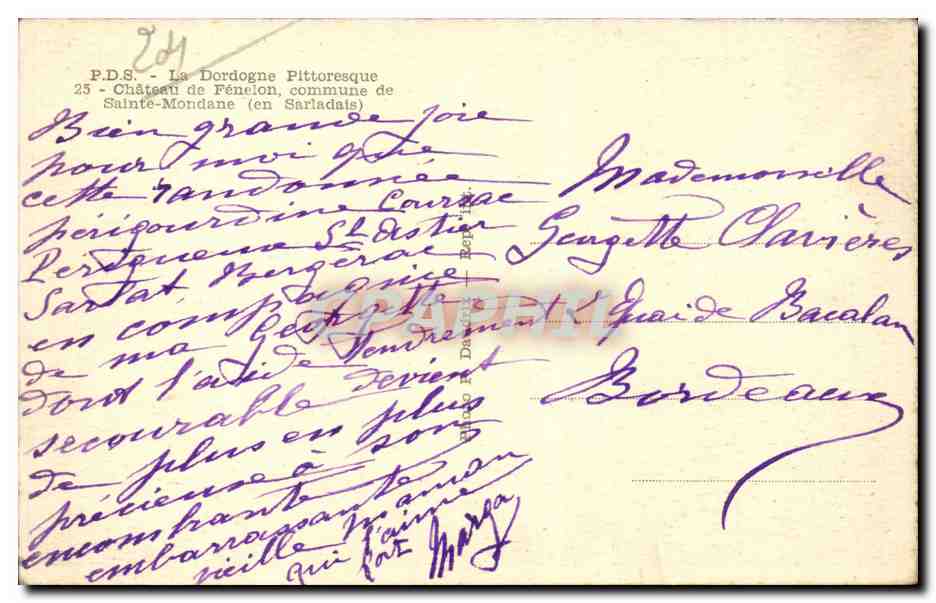 P.D.S. - La Dordogne Pittoresque
25 - Château de Fénelon, commune de
Sainte-Mondane (en Sarladais)
Bien grande joie
pour moi que
cette randonnée
périgourdine Coursac
Périgueux St Astier
Sarlat, Bergerac
en compagnie
de ma Georgette
dont l'aide tendrement
secourable devient
de plus en plus
précieuse à son
encombrante
embarrassante
vieille maman
qui l'aime
fort
Marga
Mademoiselle
Georgette Clavières
Quai de Bacalan
Bordeaux
Photo
CPAPHIL